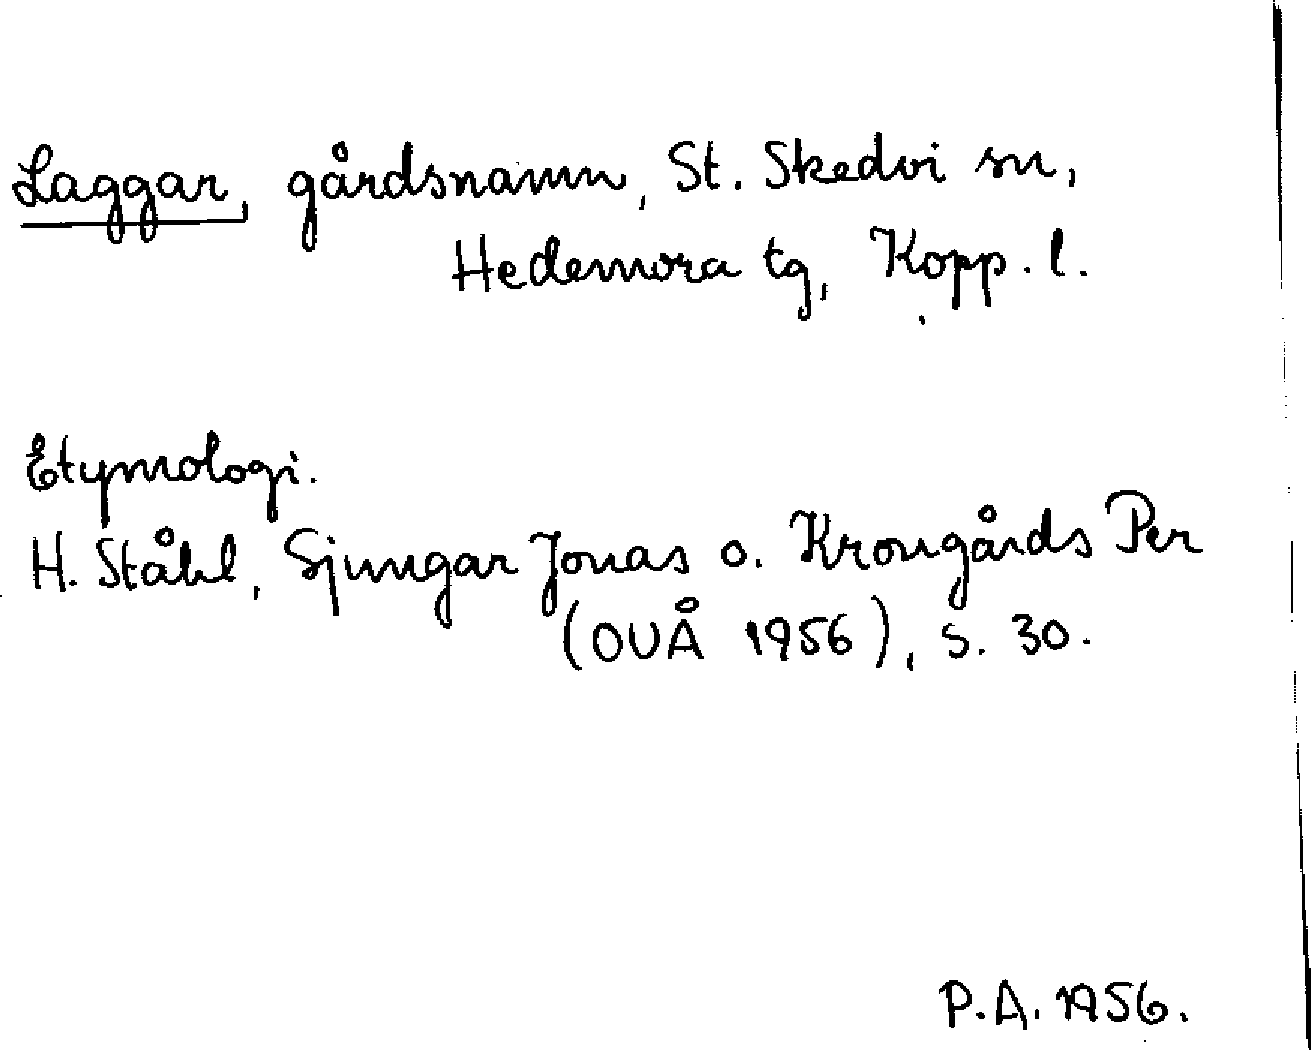 Laggar, gårdsnamn, St. Skedvi sn,
Hedemora tg, Kopp. l.
Etymologi.
H. Ståhl, Sjungar Jonas o. Krongårds Per
(OUÅ 1956), s. 30.
P.A. 1956.